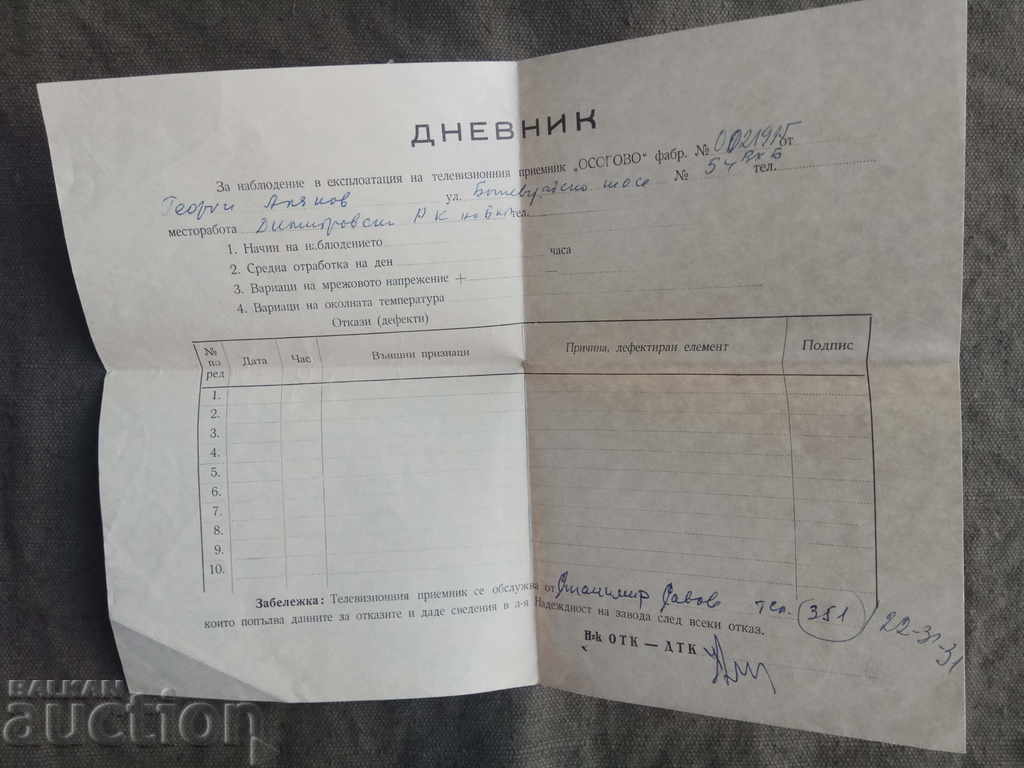 ДНЕВНИК
За наблюдение в експлоатация на телевизионния приемник „ОССГОВО“ фабр. № от
Георги ул. шосе № 54 тел.
месторабота Димитровски тел.
1. Начин на наблюдението
2. Средна отработка на ден часа
3. Вариаци на мрежовото напрежение + —
4. Вариаци на околната температура
Откази (дефекти)
№ по ред Дата Час Външни признаци Причина, дефектиран елемент Подпис
1.
2.
3.
4.
5.
6.
7.
8.
9.
10.
Забележка: Телевизионния приемник се обслужва от Станимир Савов тел. 351 22-31-31
които попълва данните за отказите и даде сведения в л-я Надеждност на завода след всеки отказ.
Н-к ОТК — ДТК
BALKAN
auction